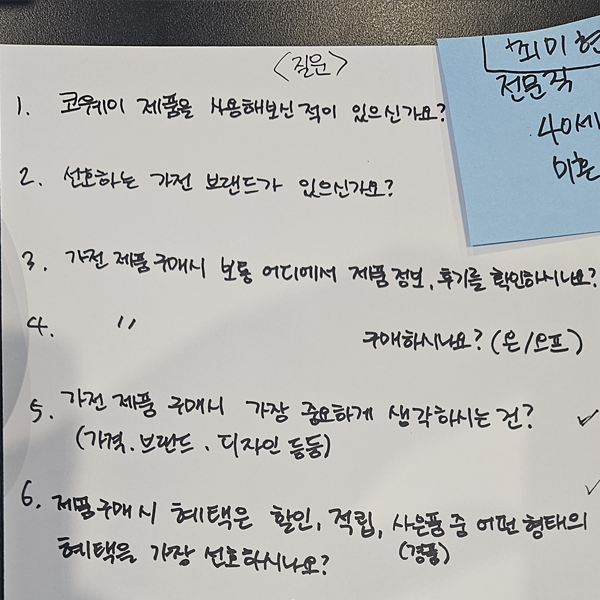 <질문>
1. 코웨이 제품을 사용해보신 적이 있으신가요?
2. 선호하는 가전 브랜드가 있으신가요?
3. 가전 제품 구매시 보통 어디에서 제품 정보, 후기를 확인하시나요?
4. 〃 구매하시나요? (온/오프)
5. 가전 제품 구매시 가장 중요하게 생각하시는 건? ✓
(가격. 브랜드. 디자인 등등)
6. 제품 구매시 혜택은 할인, 적립, 사은품 중 어떤 형태의 ✓
(경품)
혜택을 가장 선호하시나요?
최미현
전문직
40세
미혼